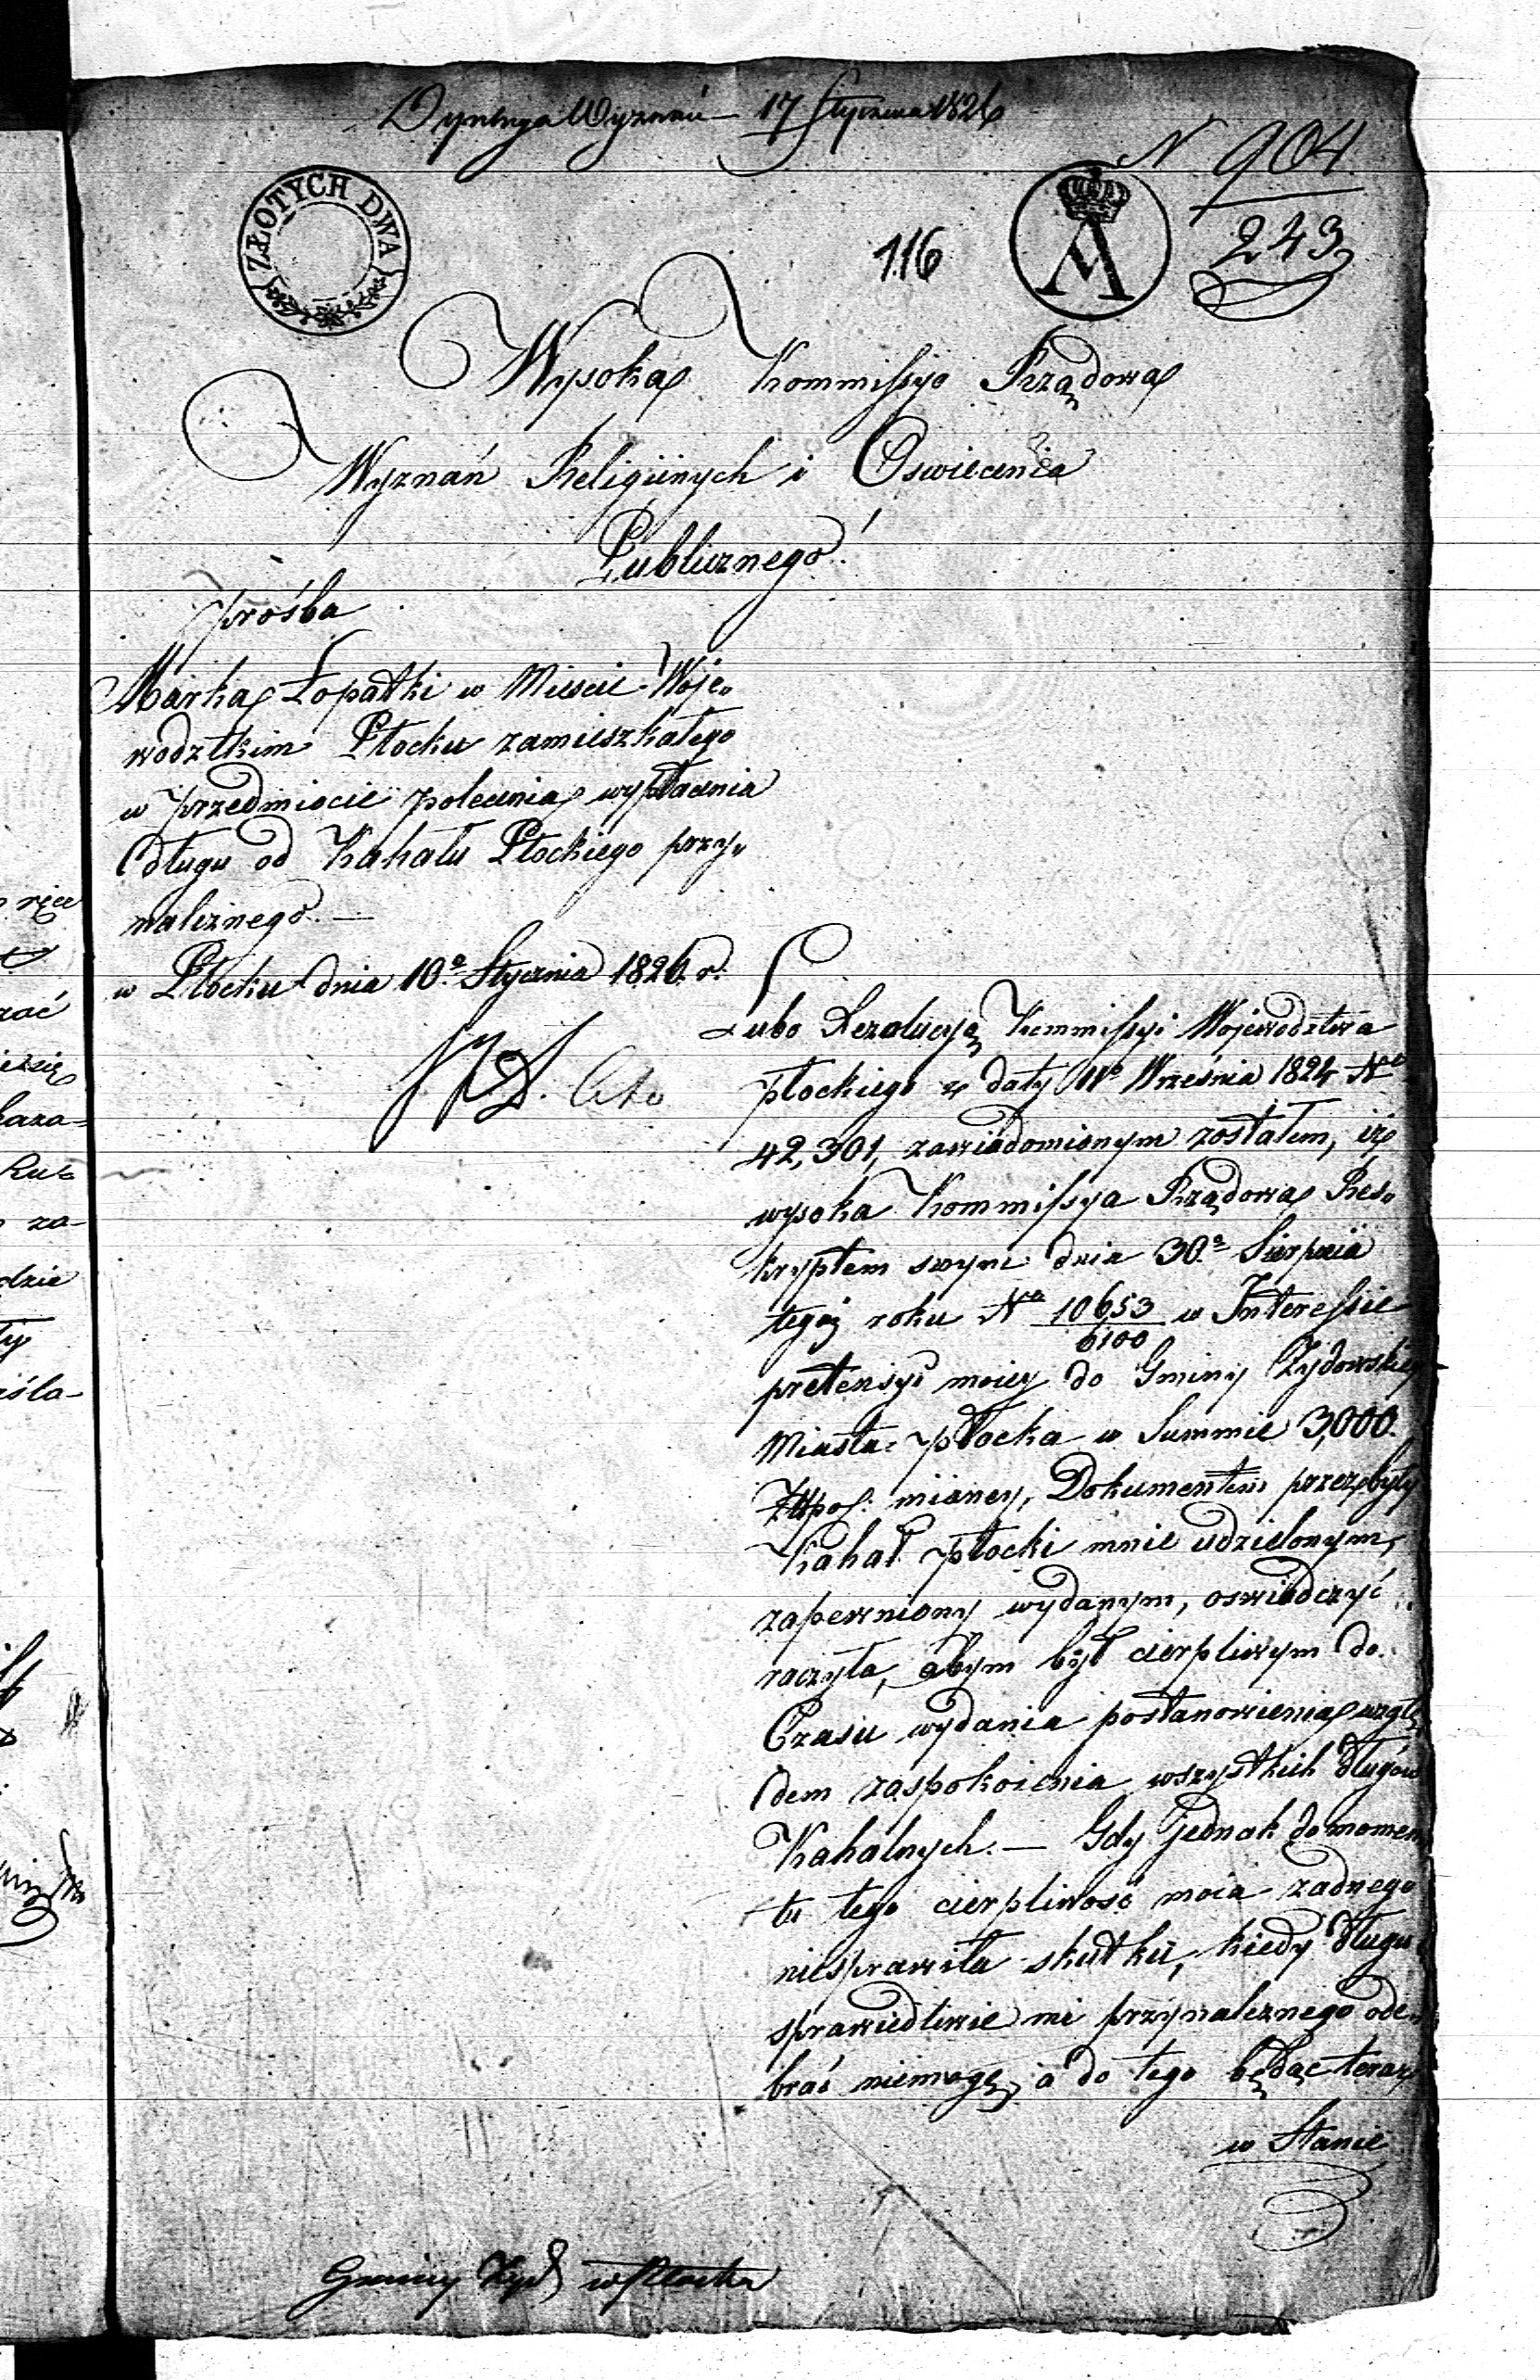 Wyznań 17 Stycznia 1826
N 904
243
ZŁOTYCH DWA
116
A
Wysoka Kommissyo Rządowa
Wyznań Religiinych i Oswiecenia
Publicznego!
Prośba
Marka Łopatki w Miescie Woje„
wodztkim Płocku zamieszkałego
w przedmiocie polecenia wypłacenia
długu od Kahału Płockiego przy„
naleznego. —
w Płocku dnia 10º Stycznia 1826. r.
Lubo Rezolucyą Kommissyi Wojewodztwa
Płockiego z daty Września 1824 Nro
42,301, zawiadomionym zostałem, iż
wysoka Kommissya Rządowa Res„
kryptem swym dnia 30º Sierpnia
tegoż roku Nro 10653/6100 w Interessie
pretensyi moiey do Gminy Żydowskiey
Miasta Płocka w Summie 3,000.
Złpol: mianey, Dokumentem przez były
Kahał Płocki mnie udzielonym,
zapewniony wydanym, oswiadczyć
raczyła, abym był cierpliwym do
Czasu wydania postanowienia wzglę
dem zaspokoienia wszystkich długów
Kahalnych. — Gdy jednak do momen
tu tego cierpliwość moia żadnego
niesprawiła skutku, kiedy długu
sprawiedliwie mi przynaleznego ode„
brać niemogę, a do tego będąc teraz
w Stanie
Gminy Żyd w Płocku
rzęce
zać
kaza=
za-
dzie
ty